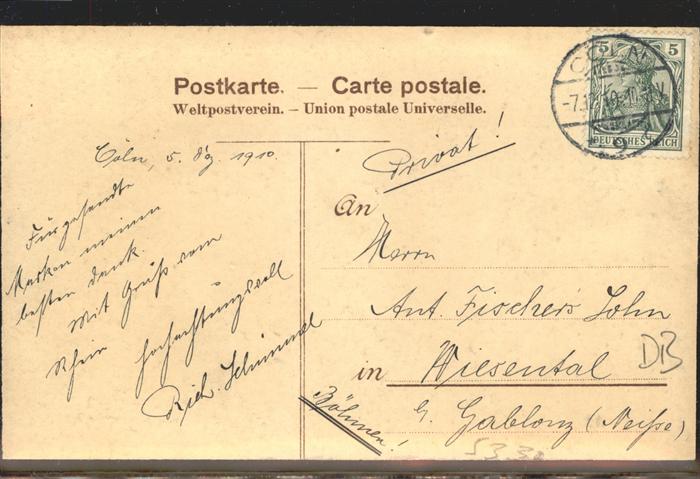 Postkarte. — Carte postale.
Weltpostverein. – Union postale Universelle.
CÖLN
5 5
DEUTSCHES REICH
Cöln, 5. Dez. 1910.
Für gesandte
Marken meinen
besten Dank.
Mit Gruß vom
Rhein
Hochachtungsvoll
Rich. Schimmel
Privat!
An
Herrn
Ant. Fischer's Sohn
in Wiesental
b. Gablonz (Neiße)
Böhmen!
DB
53.30